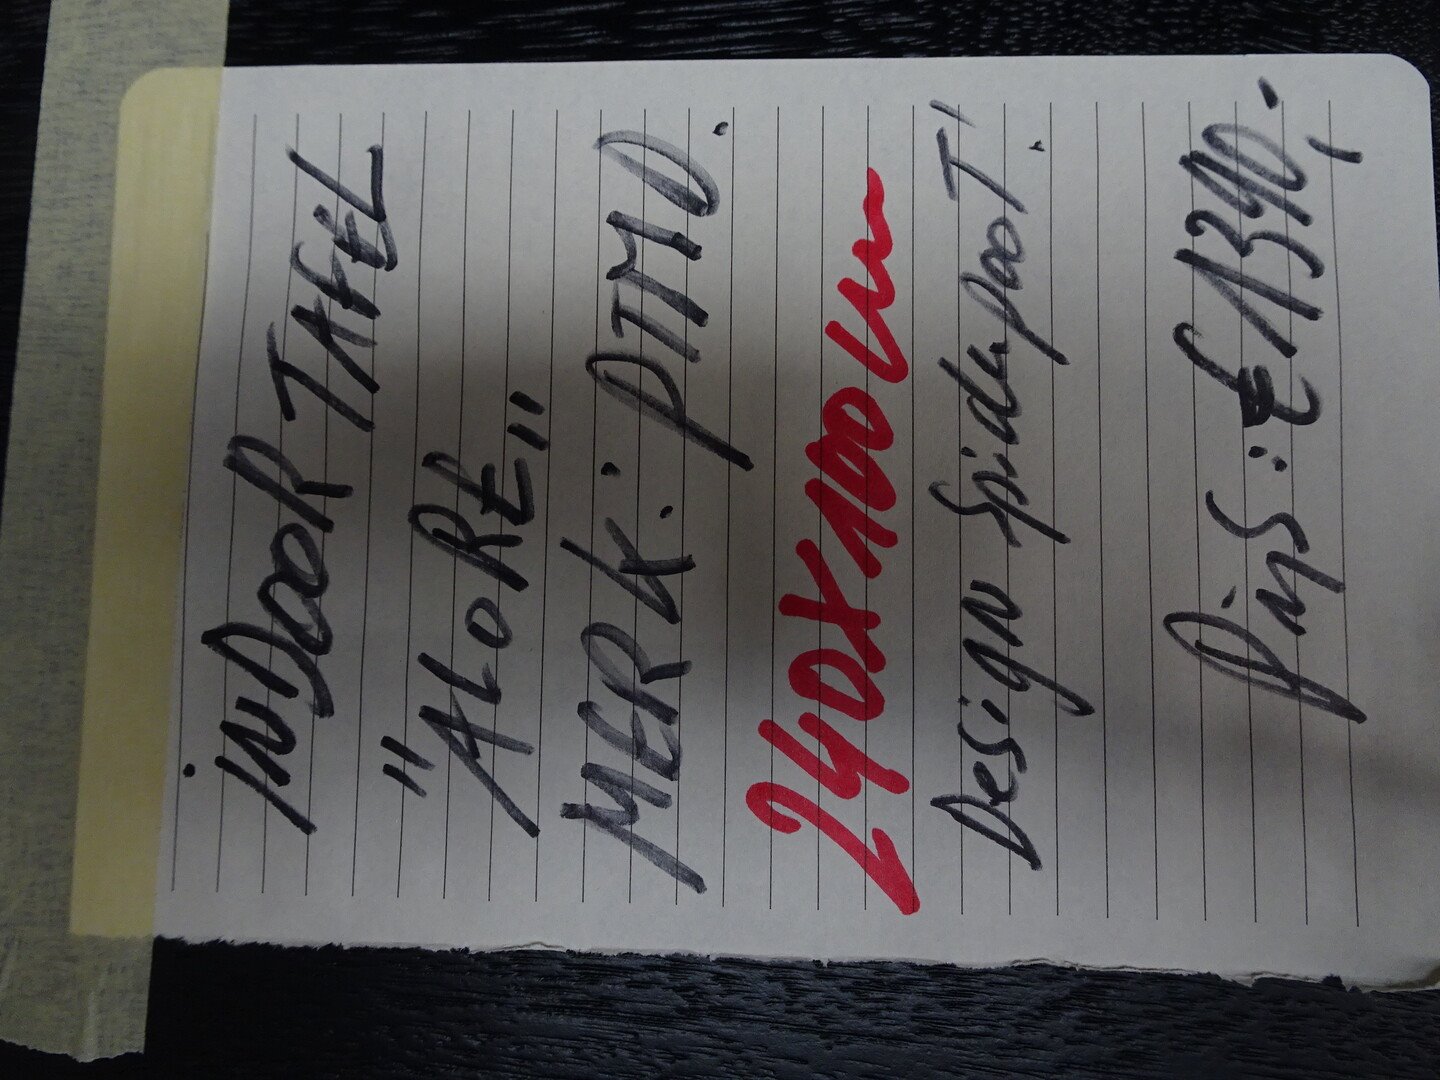 iNDOOR TAFEL
"ALORE"
MERK: PTMD.
240X100cm
Design Spiderpoot!
Prijs: € 1390,-